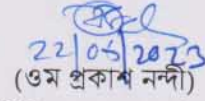 22/05/2023
(ওম প্রকাশ নন্দী)